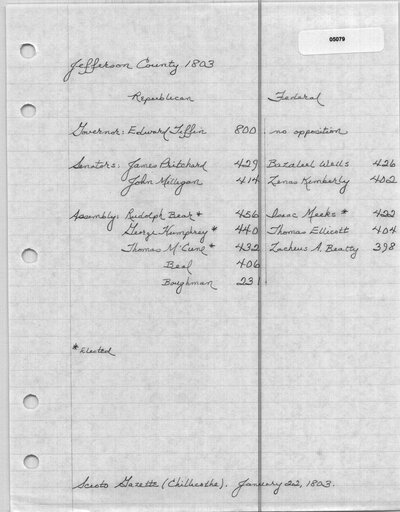 05079
Jefferson County 1803
Republican Federal
Governor: Edward Tiffin 800 no opposition
Senators: James Pritchard 429 Bazaleel Wells 426
John Milligan 414 Zenas Kimberly 402
Assembly: Rudolph Bear* 456 Isaac Meeks * 422
George Humphrey * 440 Thomas Ellicott 404
Thomas McCune * 432 Zacheus A. Beatty 398
Beal 406
Boughman 231
* elected
Scioto Gazette (Chillicothe), January 22, 1803.